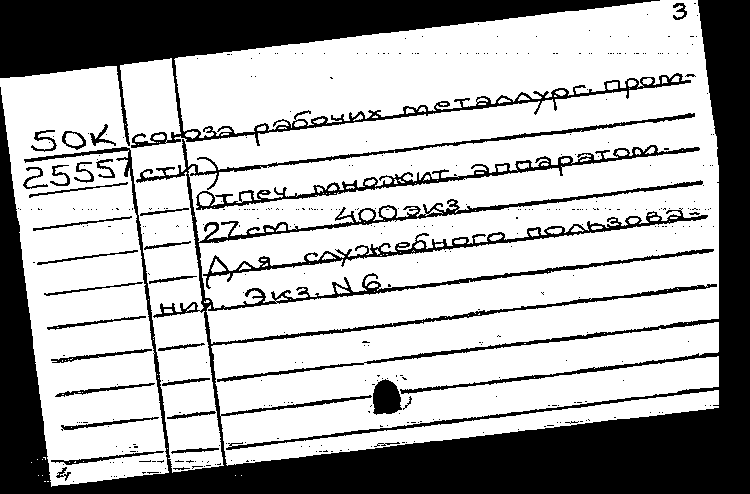 3
50К союза рабочих металлург. пром-
25557 сти)
Отпеч. множит. аппаратом.
27 см. 400 экз.
Для служебного пользова-
ния. Экз. N 6.